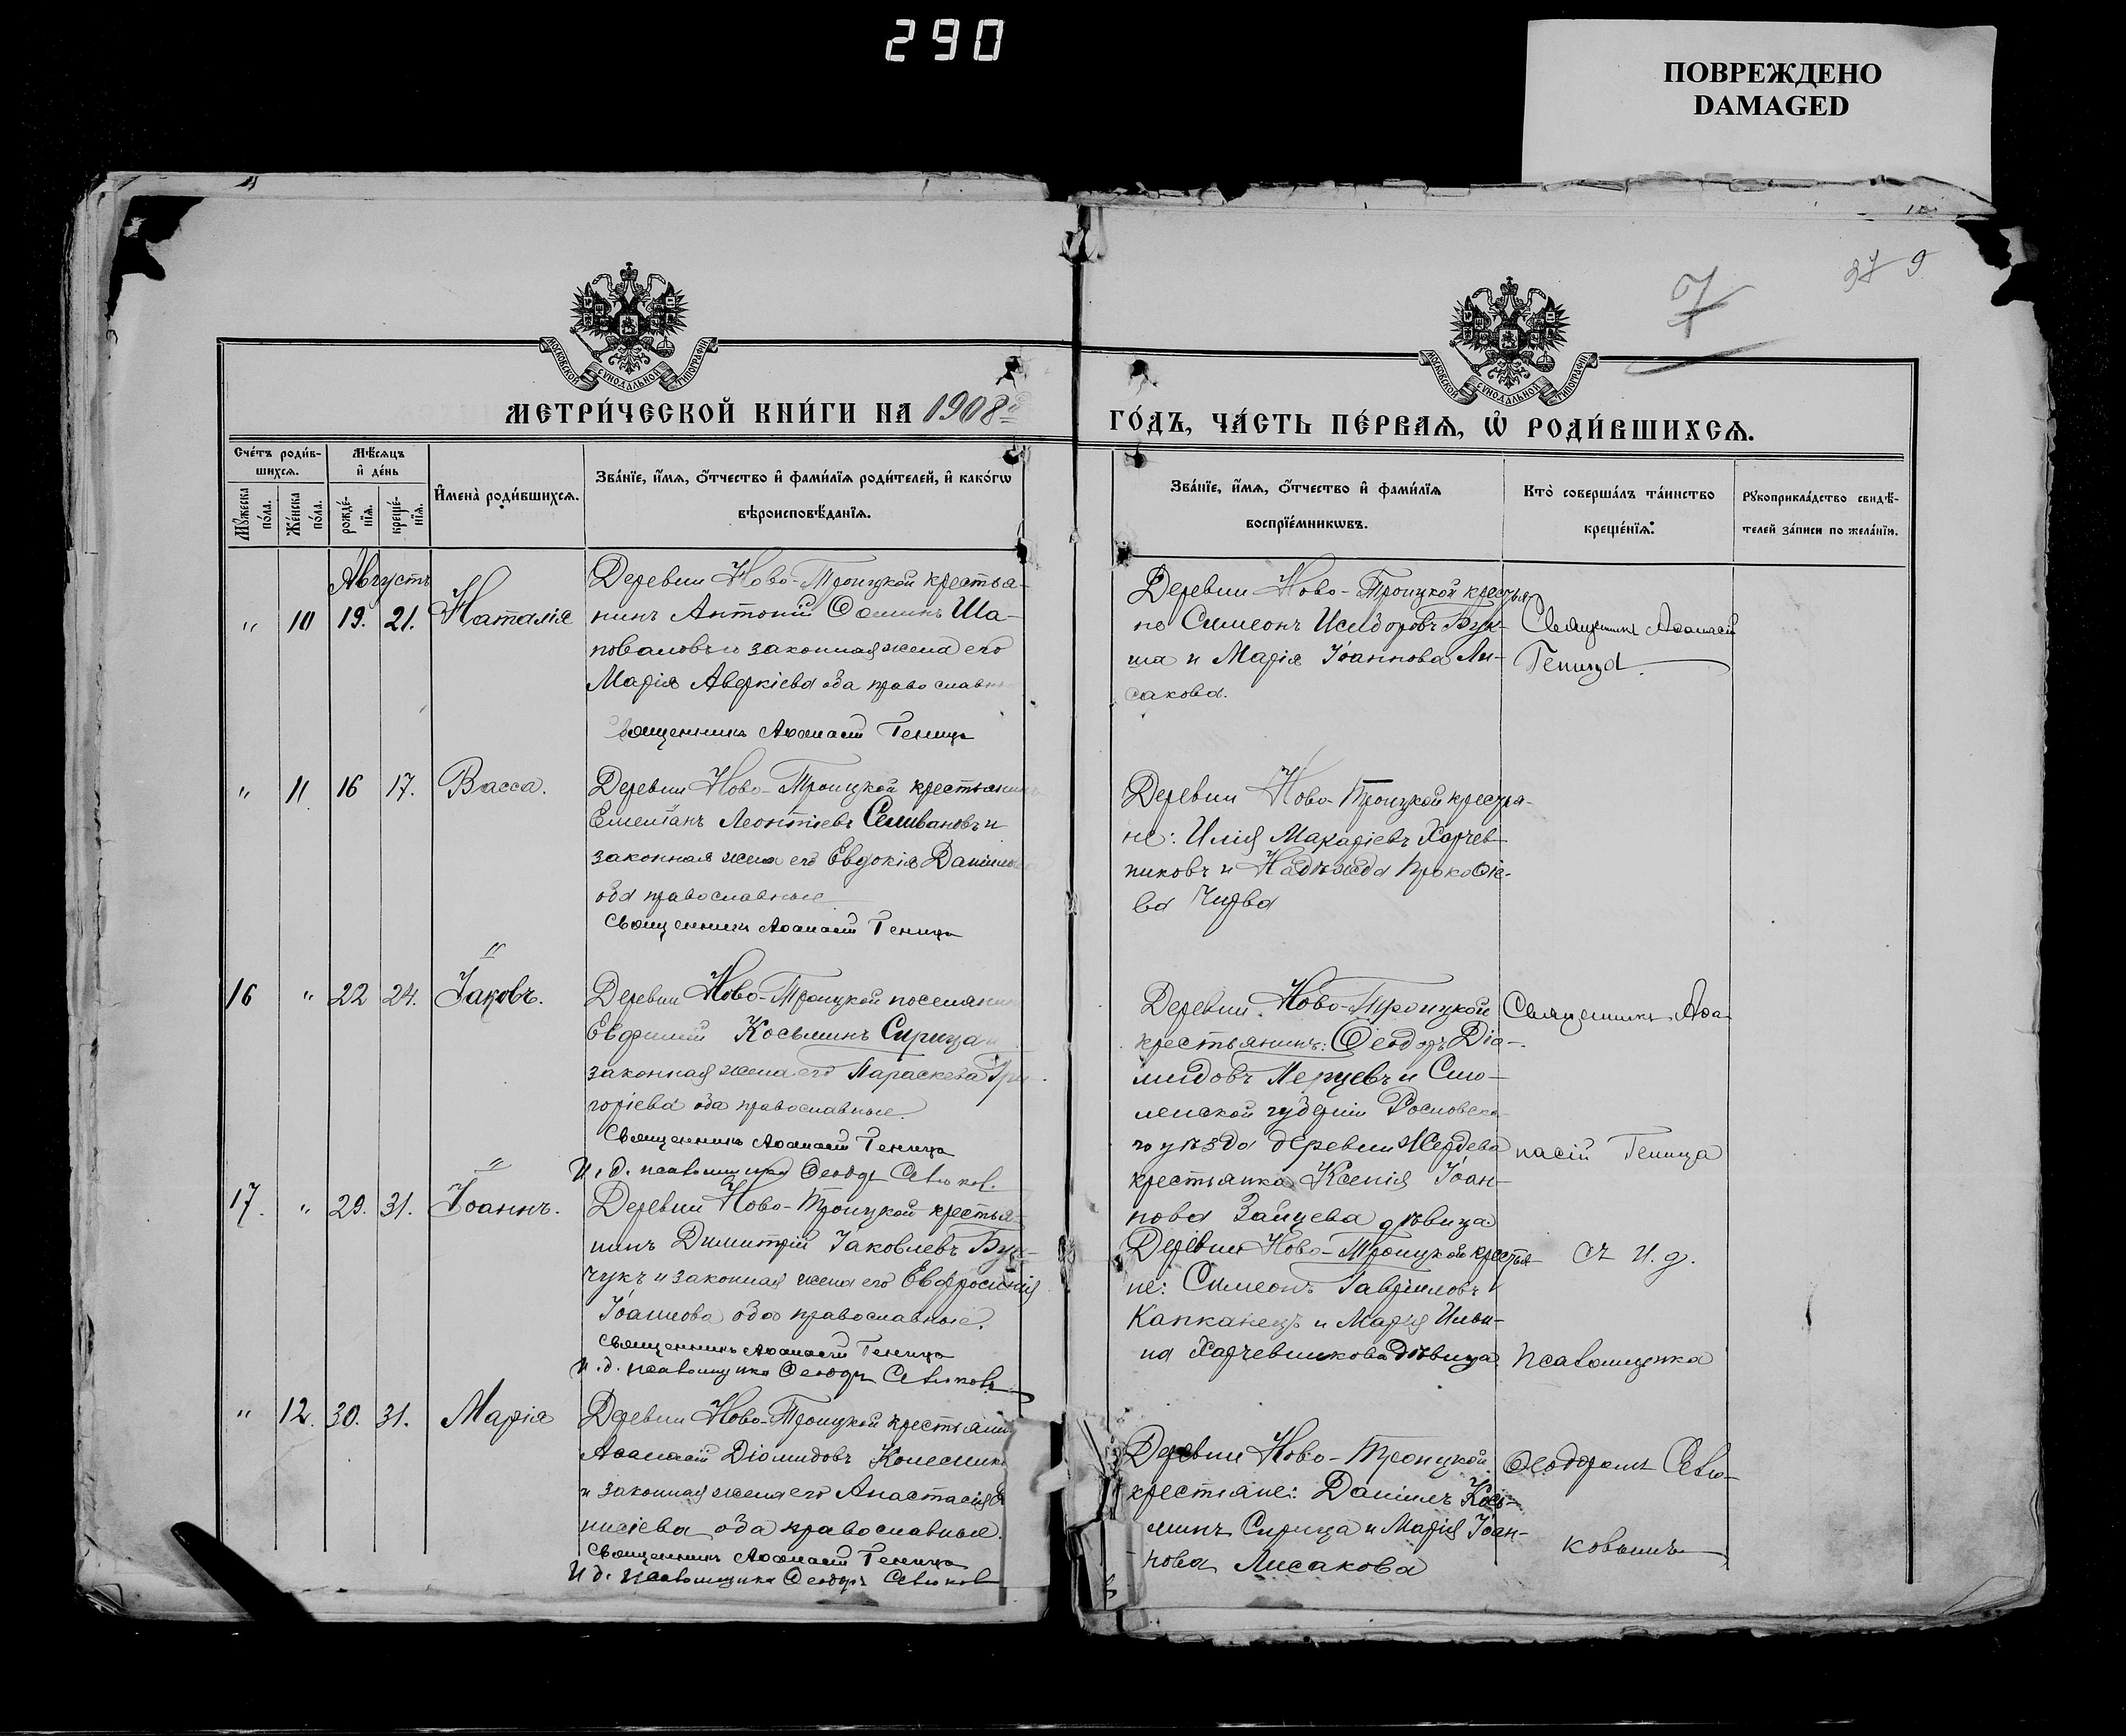 290
ПОВРЕЖДЕНО
DAMAGED
7
9
МОСКОВСКОЙ СѴНОДАЛЬНОЙ ТИПОГРАФІИ
МОСКОВСКОЙ СѴНОДАЛЬНОЙ ТИПОГРАФІИ
МЕТРИ́ЧЕСКОЙ КНИ́ГИ НА 1908й
ГО́ДЪ, ЧА́СТЬ ПЕ́РВАѦ, Ѡ҆ РОДИ́ВШИХСѦ.
Сче́тъ роди́в-
шихсѧ.
Мѣ́сѧцъ
и҆ де́нь
Мꙋ́жеска по́ла.
Же́нска по́ла.
рожде́-нїѧ.
креще́-нїѧ.
И҆мена̀ роди́вшихсѧ.
Зва́нїе, и҆́мѧ, ѻ҆́тчество и҆ фами́лїѧ роди́телей, и҆ како́гѡ
вѣроисповѣ́данїѧ.
Зва́нїе, и҆́мѧ, ѻ҆́тчество и҆ фами́лїѧ
воспрїе́мникѡвъ.
Кто̀ соверша́лъ та́инство
креще́нїѧ:
Рꙋкоприкла́дство свидѣ́-
телей за́писи по жела́нїю.
Августъ
" 10 19. 21. Наталія
Деревни Ново-Троицкой крестья-
нинъ Антоній Ѳоминъ Ша-
поваловъ и законная жена его
Марія Аверкіева оба православн
Священникъ Аѳанасій Геница
Деревни Ново-Троицкой крестья
не Симеонъ Исидоровъ Бук-
ша и Марія Іоаннова Ли-
сакова.
Священникъ Аѳанасій
Геница.
" 11 16 17. Васса.
Деревни Ново-Троицкой крестьянин
Емеліанъ Леонтіевъ Селивановъ и
законная жена его Евдокія Данилов
оба православные
Священникъ Аѳанасій Геница
Деревни Ново-Троицкой крестья-
не: Илія Макаріевъ Харчев-
никовъ и Надежда Прокофіе-
ва Чирва
"
16 " 22 24. Іаковъ.
Деревни Ново-Троицкой поселянин
Евфимій Косьминъ Сирица и
законная жена его Параскева Гри
горіева оба православные.
Священникъ Аѳанасій Геница
И. д. псаломщика Ѳеодоръ Севьюков.
Деревни Ново-Троицкой
крестьянинъ: Ѳеодоръ Діо-
мидовъ Перцевъ и Смо-
ленской губерніи Рословска-
го уѣзда деревни Жердева
крестьянка Ксенія Іоан-
нова Зайцева дѣвица
Священникъ Аѳа-
насій Геница
"
17. " 29. 31. Іоаннъ.
Деревни Ново-Троицкой крестья-
нинъ Димитрій Іаковлевъ Бун-
чукъ и законная жена его Евфросинія
Іоаннова оба православные.
Священникъ Аѳанасій Геница
И. д. псаломщика Ѳеодоръ Севьюковъ
Деревни Ново-Троицкой крестья-
не: Симеонъ Гавріиловъ
Капканецъ и Марія Ильи-
на Харчевникова дѣвица
съ и. д.
псаломщика
" 12. 30. 31. Марія
Деревни Ново-Троицкой крестьянин
Аѳанасій Діомидовъ Колесник
и законная жена его Анастасія
нисіева оба православные.
Священникъ Аѳанасій Геница
И д. псаломщика Ѳеодоръ Севьюков
Деревни Ново-Троицкой
крестьяне: Даніилъ Кось-
минъ Сирица и Марія Іоан-
нова Лисакова
Ѳеодоромъ Севью-
ковымъ